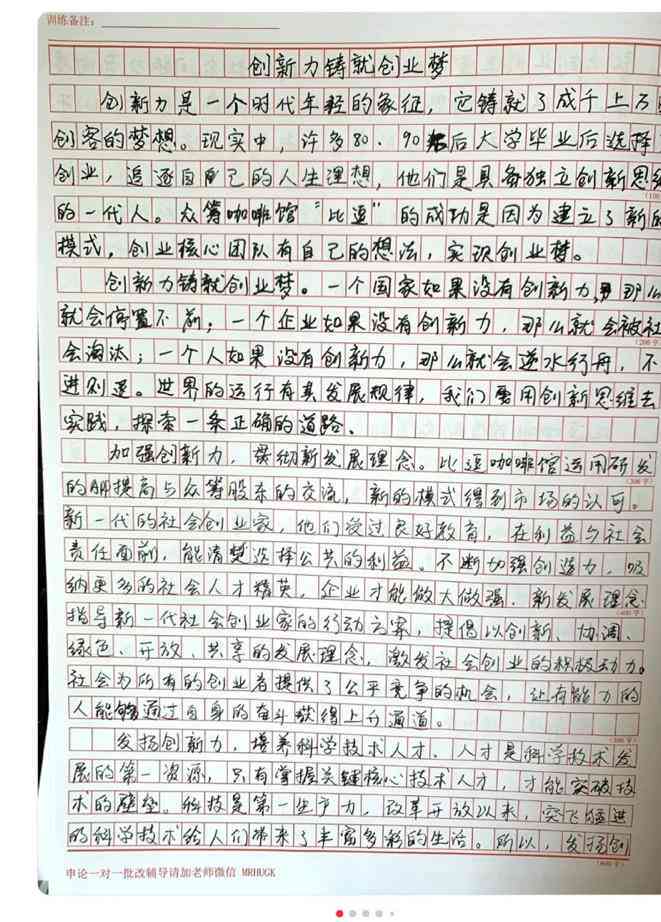 训练备注：
创新力铸就创业梦
创新力是一个时代年轻的象征，它铸就了成千上万
创客的梦想。现实中，许多80、90后大学毕业后选择
创业，追逐自己的人生理想，他们是具备独立创新思维
(100
的一代人。众筹咖啡馆“比逗”的成功是因为建立了新的
模式，创业核心团队有自己的想法，实现创业梦。
创新力铸就创业梦。一个国家如果没有创新力，那么
就会停置不前；一个企业如果没有创新力，那么就会被社
(200字)
会淘汰；一个人如果没有创新力，那么就会逆水行舟，不
进则退。世界的运行有其发展规律，我们要用创新思维去
实践，探索一条正确的道路、
加强创新力，贯彻新发展理念。比逗咖啡馆运用研发
(300字)
的 提高与众筹股东的交流，新的模式得到市场的认可。
新一代的社会创业家，他们受过良好教育，在利益与社会
责任面前，能清楚选择公共的利益。不断加强创造力，吸
纳更多的社会人才精英，企业才能做大做强。新发展理念
(400字)
指导新一代社会创业家的行动方案，提倡以创新、协调、
绿色、开放、共享的发展理念，激发社会创业的积极动力。
社会为所有的创业者提供了公平竞争的机会，让有能力的
人能够通过自身的奋斗获得上升通道。
(500字)
发扬创新力，培养科学技术人才。人才是科学技术发
展的第一资源，只有掌握关键核心技术人才，才能突破技
术的壁垒。科技是第一生产力，改革开放以来，突飞猛进
的科学技术给人们带来了丰富多彩的生活。所以，发扬创
(600字)
申论一对一批改辅导请加老师微信 MRHUGK